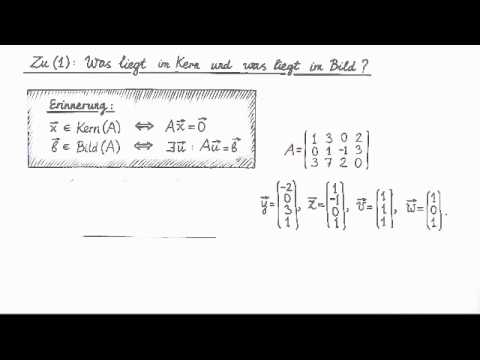 Zu (1): Was liegt im Kern und was liegt im Bild?
Erinnerung:
x⃗ ∈ Kern(A) ⇔ Ax⃗ = 0⃗
b⃗ ∈ Bild(A) ⇔ ∃u⃗ : Au⃗ = b⃗
A = (1 3 0 2
0 1 -1 3
3 7 2 0)
y⃗ = (-2 0 3 1), z⃗ = (1 -1 0 1), v⃗ = (1 1 1), w⃗ = (1 0 1).